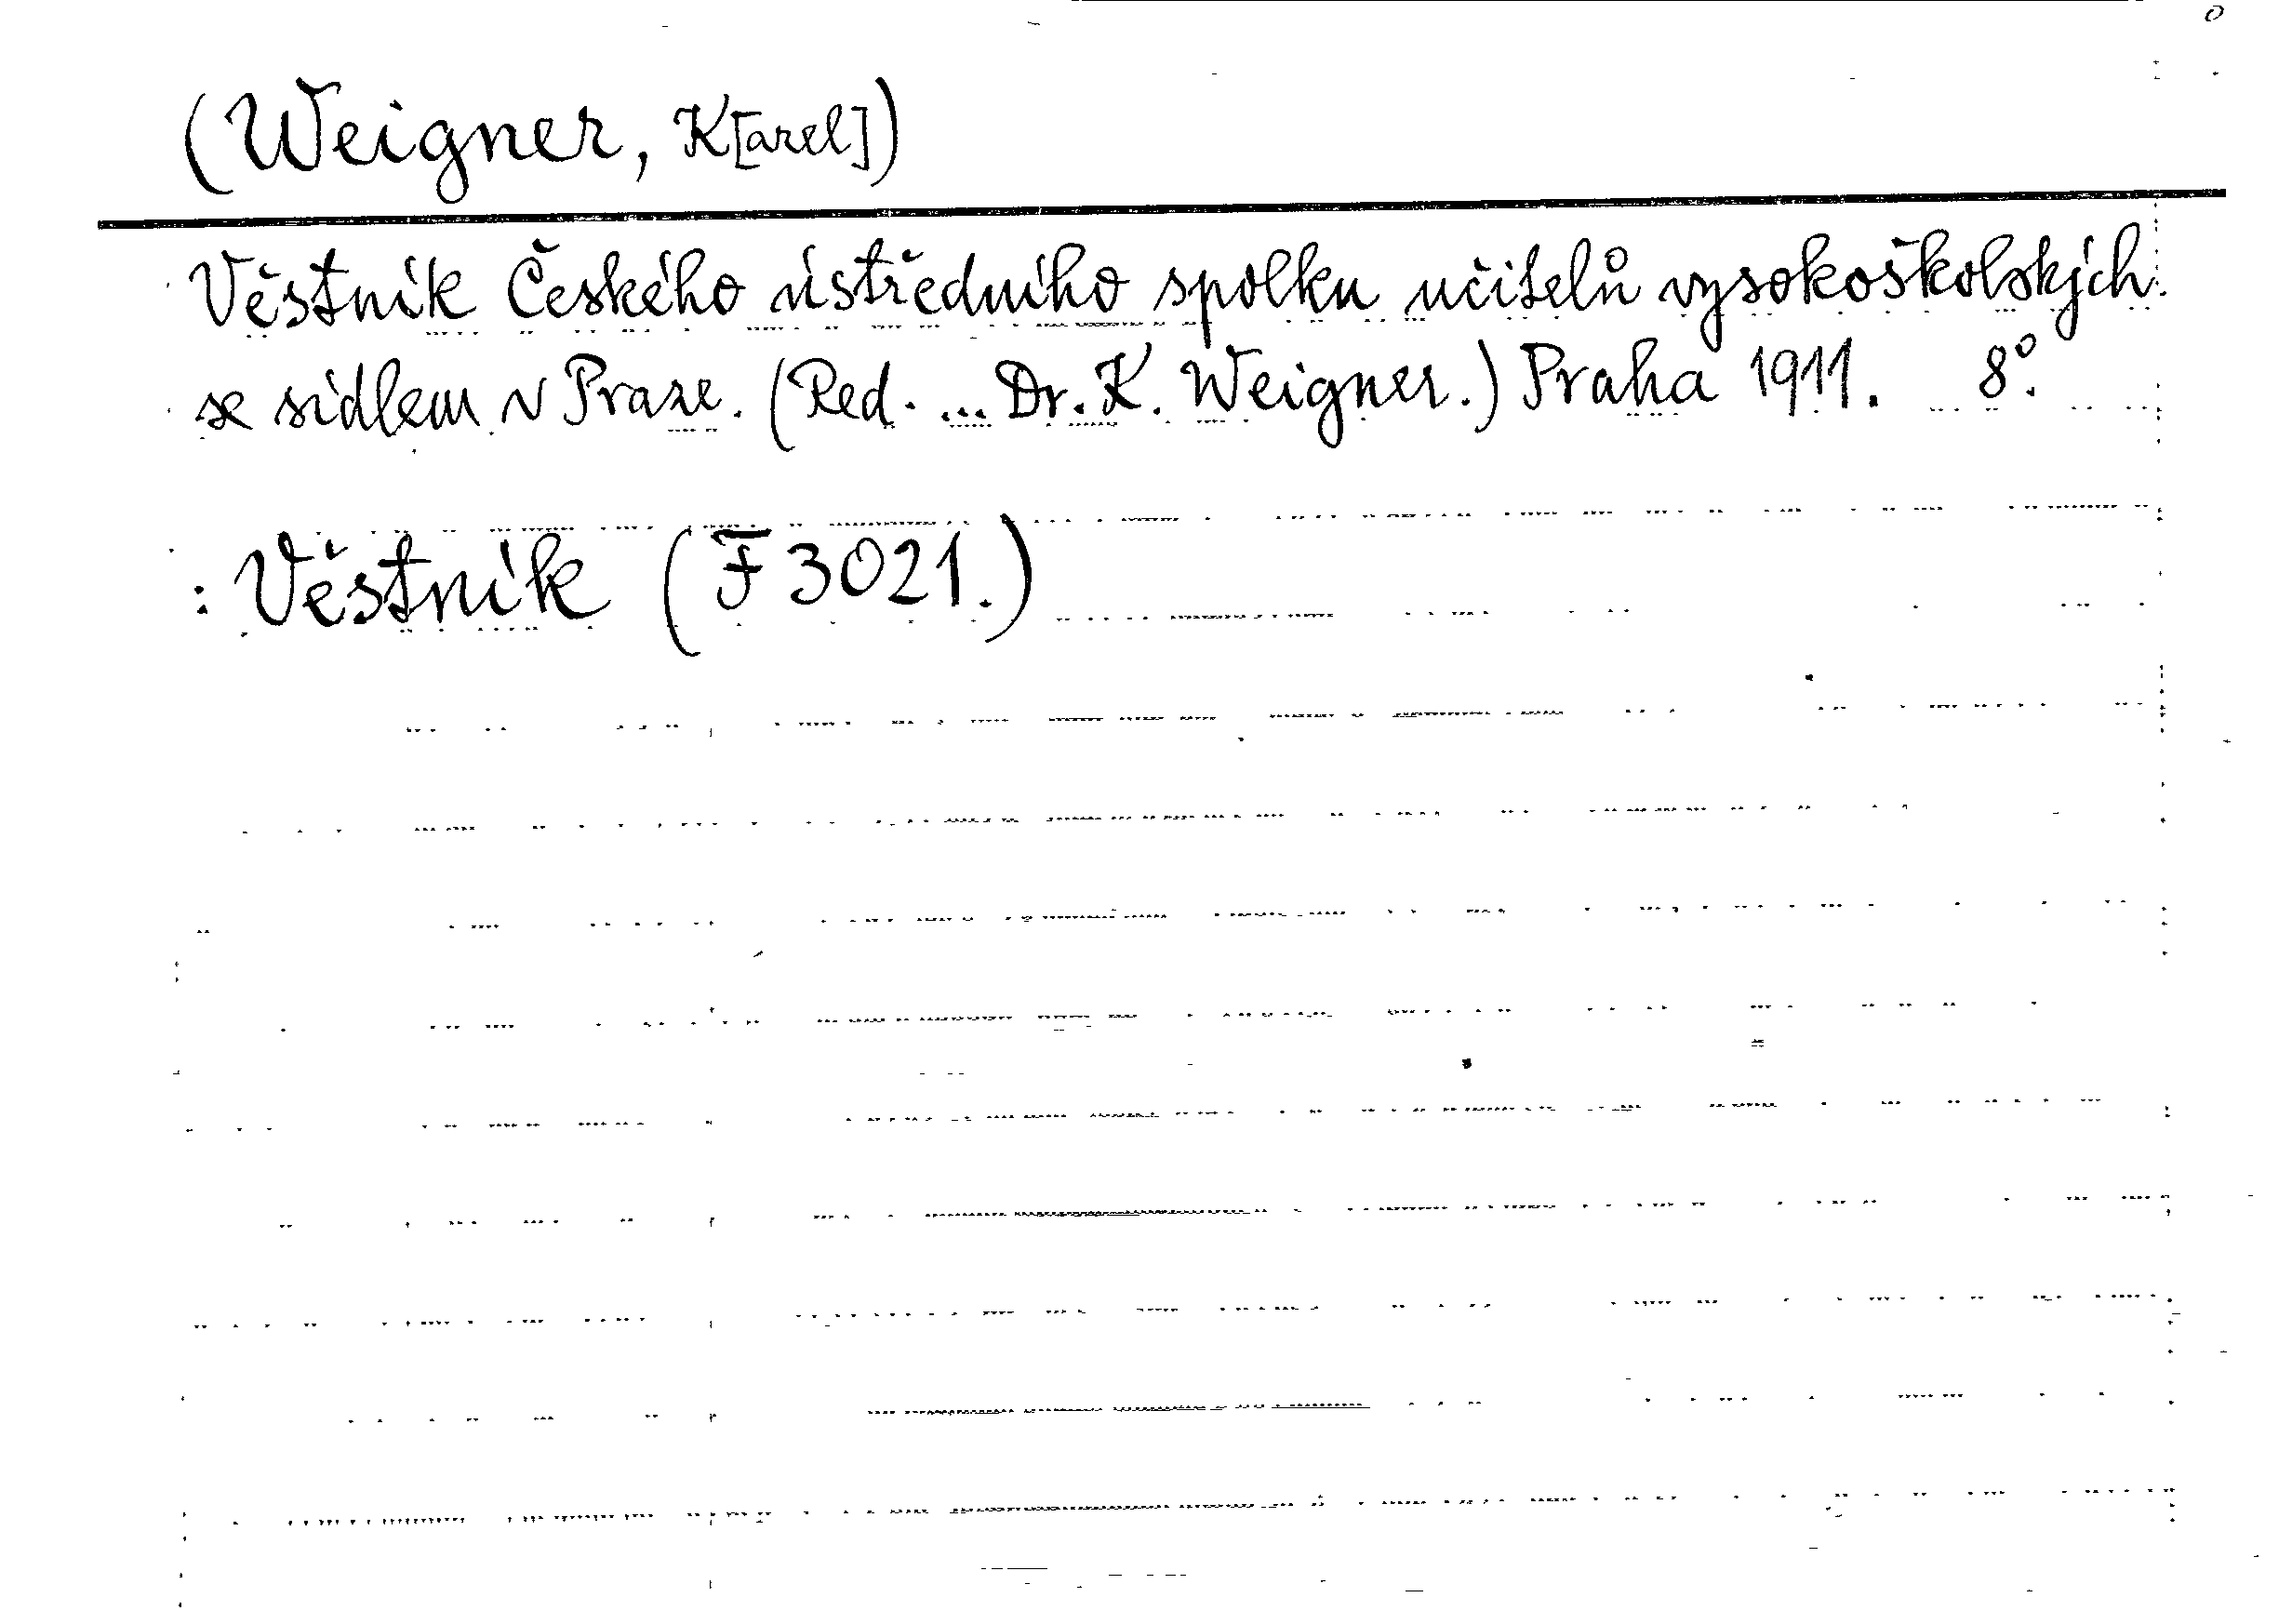 (Weigner, K[arel])
Věstník Českého ústředního spolku učitelů vysokoškolských
se sídlem v Praze. (Red. ... Dr. K. Weigner.) Praha 1911. 8°.
: Věstník (F 3021.)